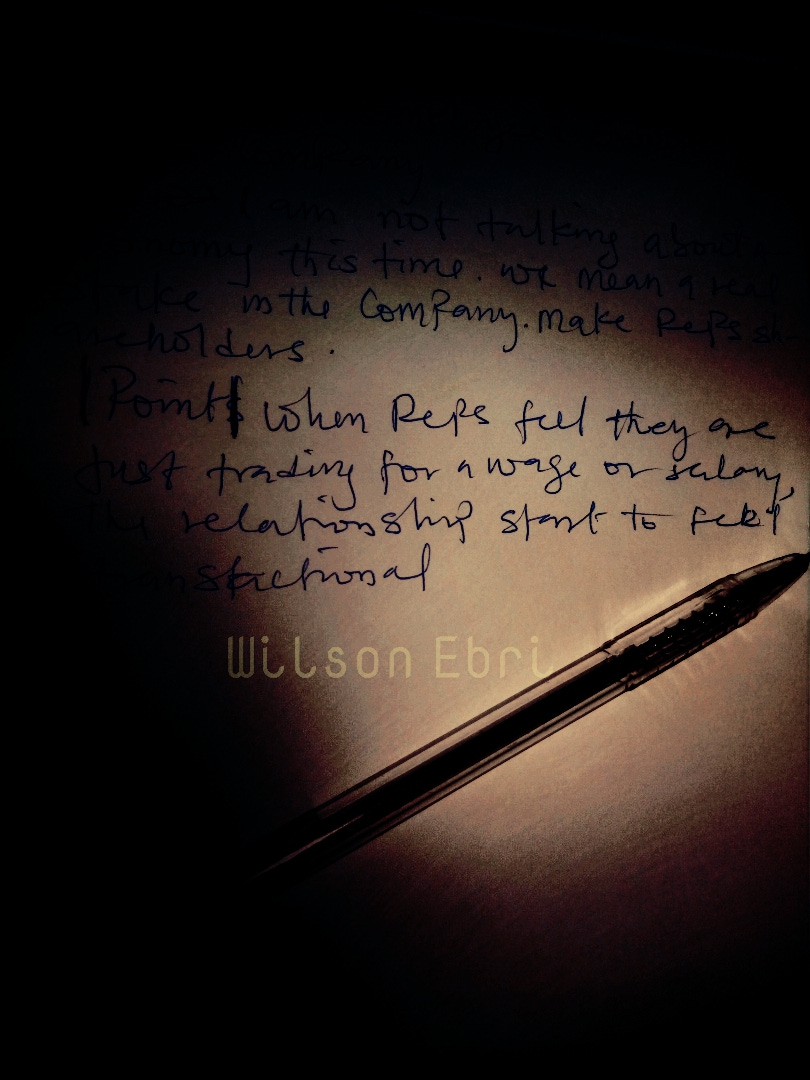 I am not talking about a
this time. we mean a real
in the Company. make Reps sh
holders.
Point when Reps feel they are
Just trading for a wage or salary,
the relationship start to feel
Wilson Ebri